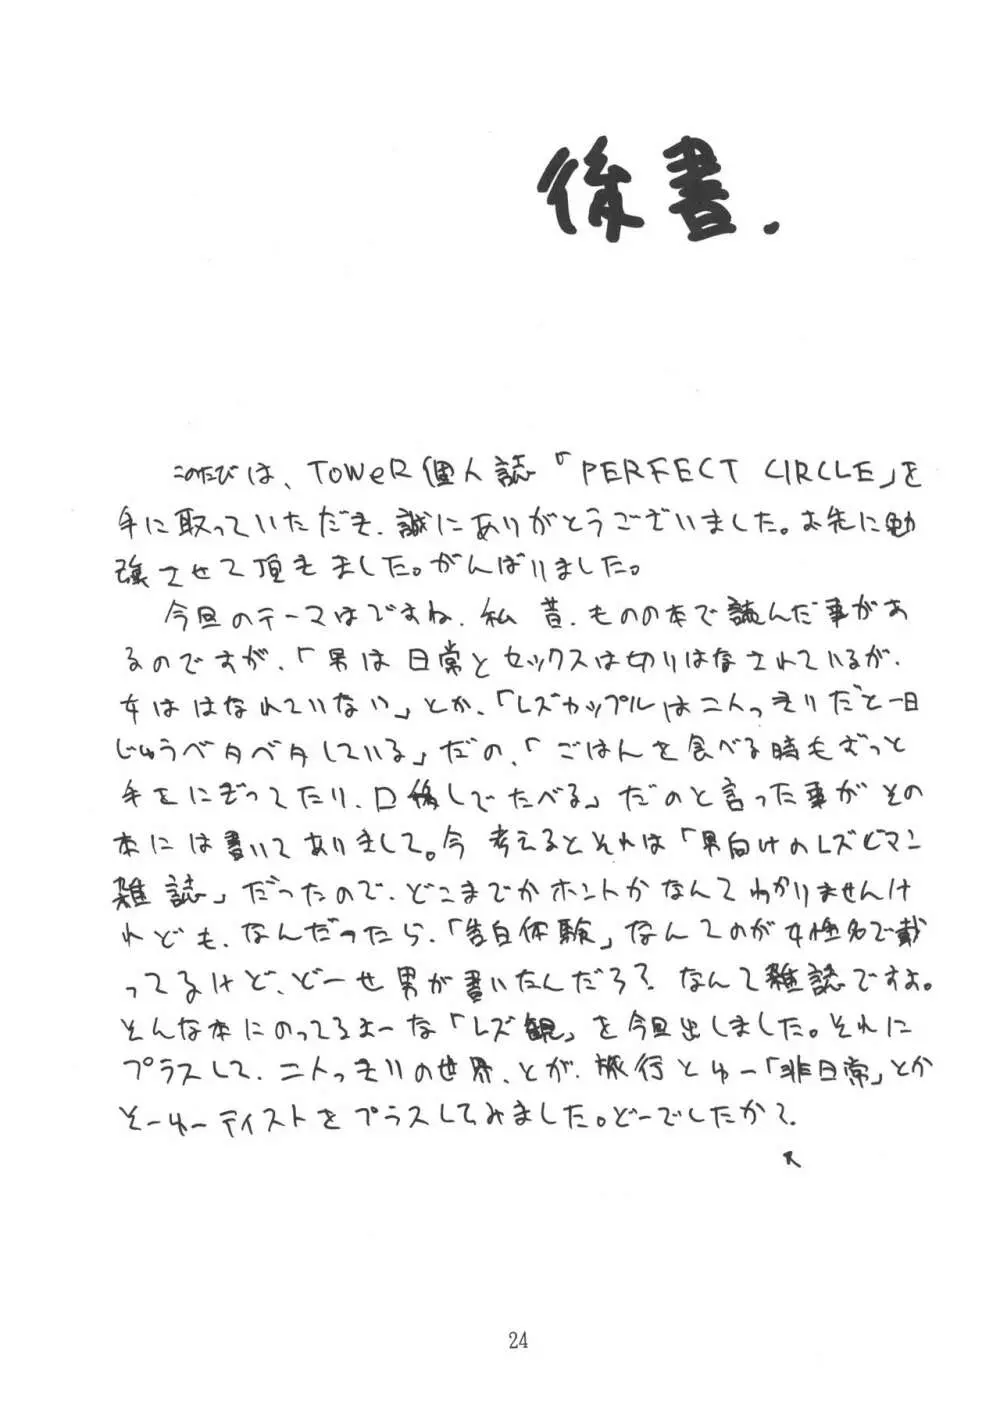 後書.
このたびは、TOWeR個人誌「PERFECT CIRCLE」を
手に取っていただき、誠にありがとうございました。お先に勉
強させて頂きました。がんばりました。
今回のテーマはですね、私昔、ものの本で読んだ事があ
るのですが、「男は日常とセックスは切りはなされているが、
女ははなれていない」とか、「レズカップルは二人っきりだと一日
じゅうベタベタしている」だの、「ごはんを食べる時もずっと
手をにぎってたり、口移しでたべる」だのと言った事がその
本には書いてありまして。今考えるとそれは「男向けのレズビアン
雑誌」だったので、どこまでがホントかなんてわかりませんけ
れども、なんだったら、「告白体験」なんてのが女性名で載
ってるけど、どーせ男が書いたんだろ？なんて雑誌ですよ。
そんな本にのってるよーな「レズ観」を今回出しました。それに
プラスして、二人っきりの世界、とか、旅行とゆー「非日常」とか
そーゆーテイストをプラスしてみました。どーでしたか？
24